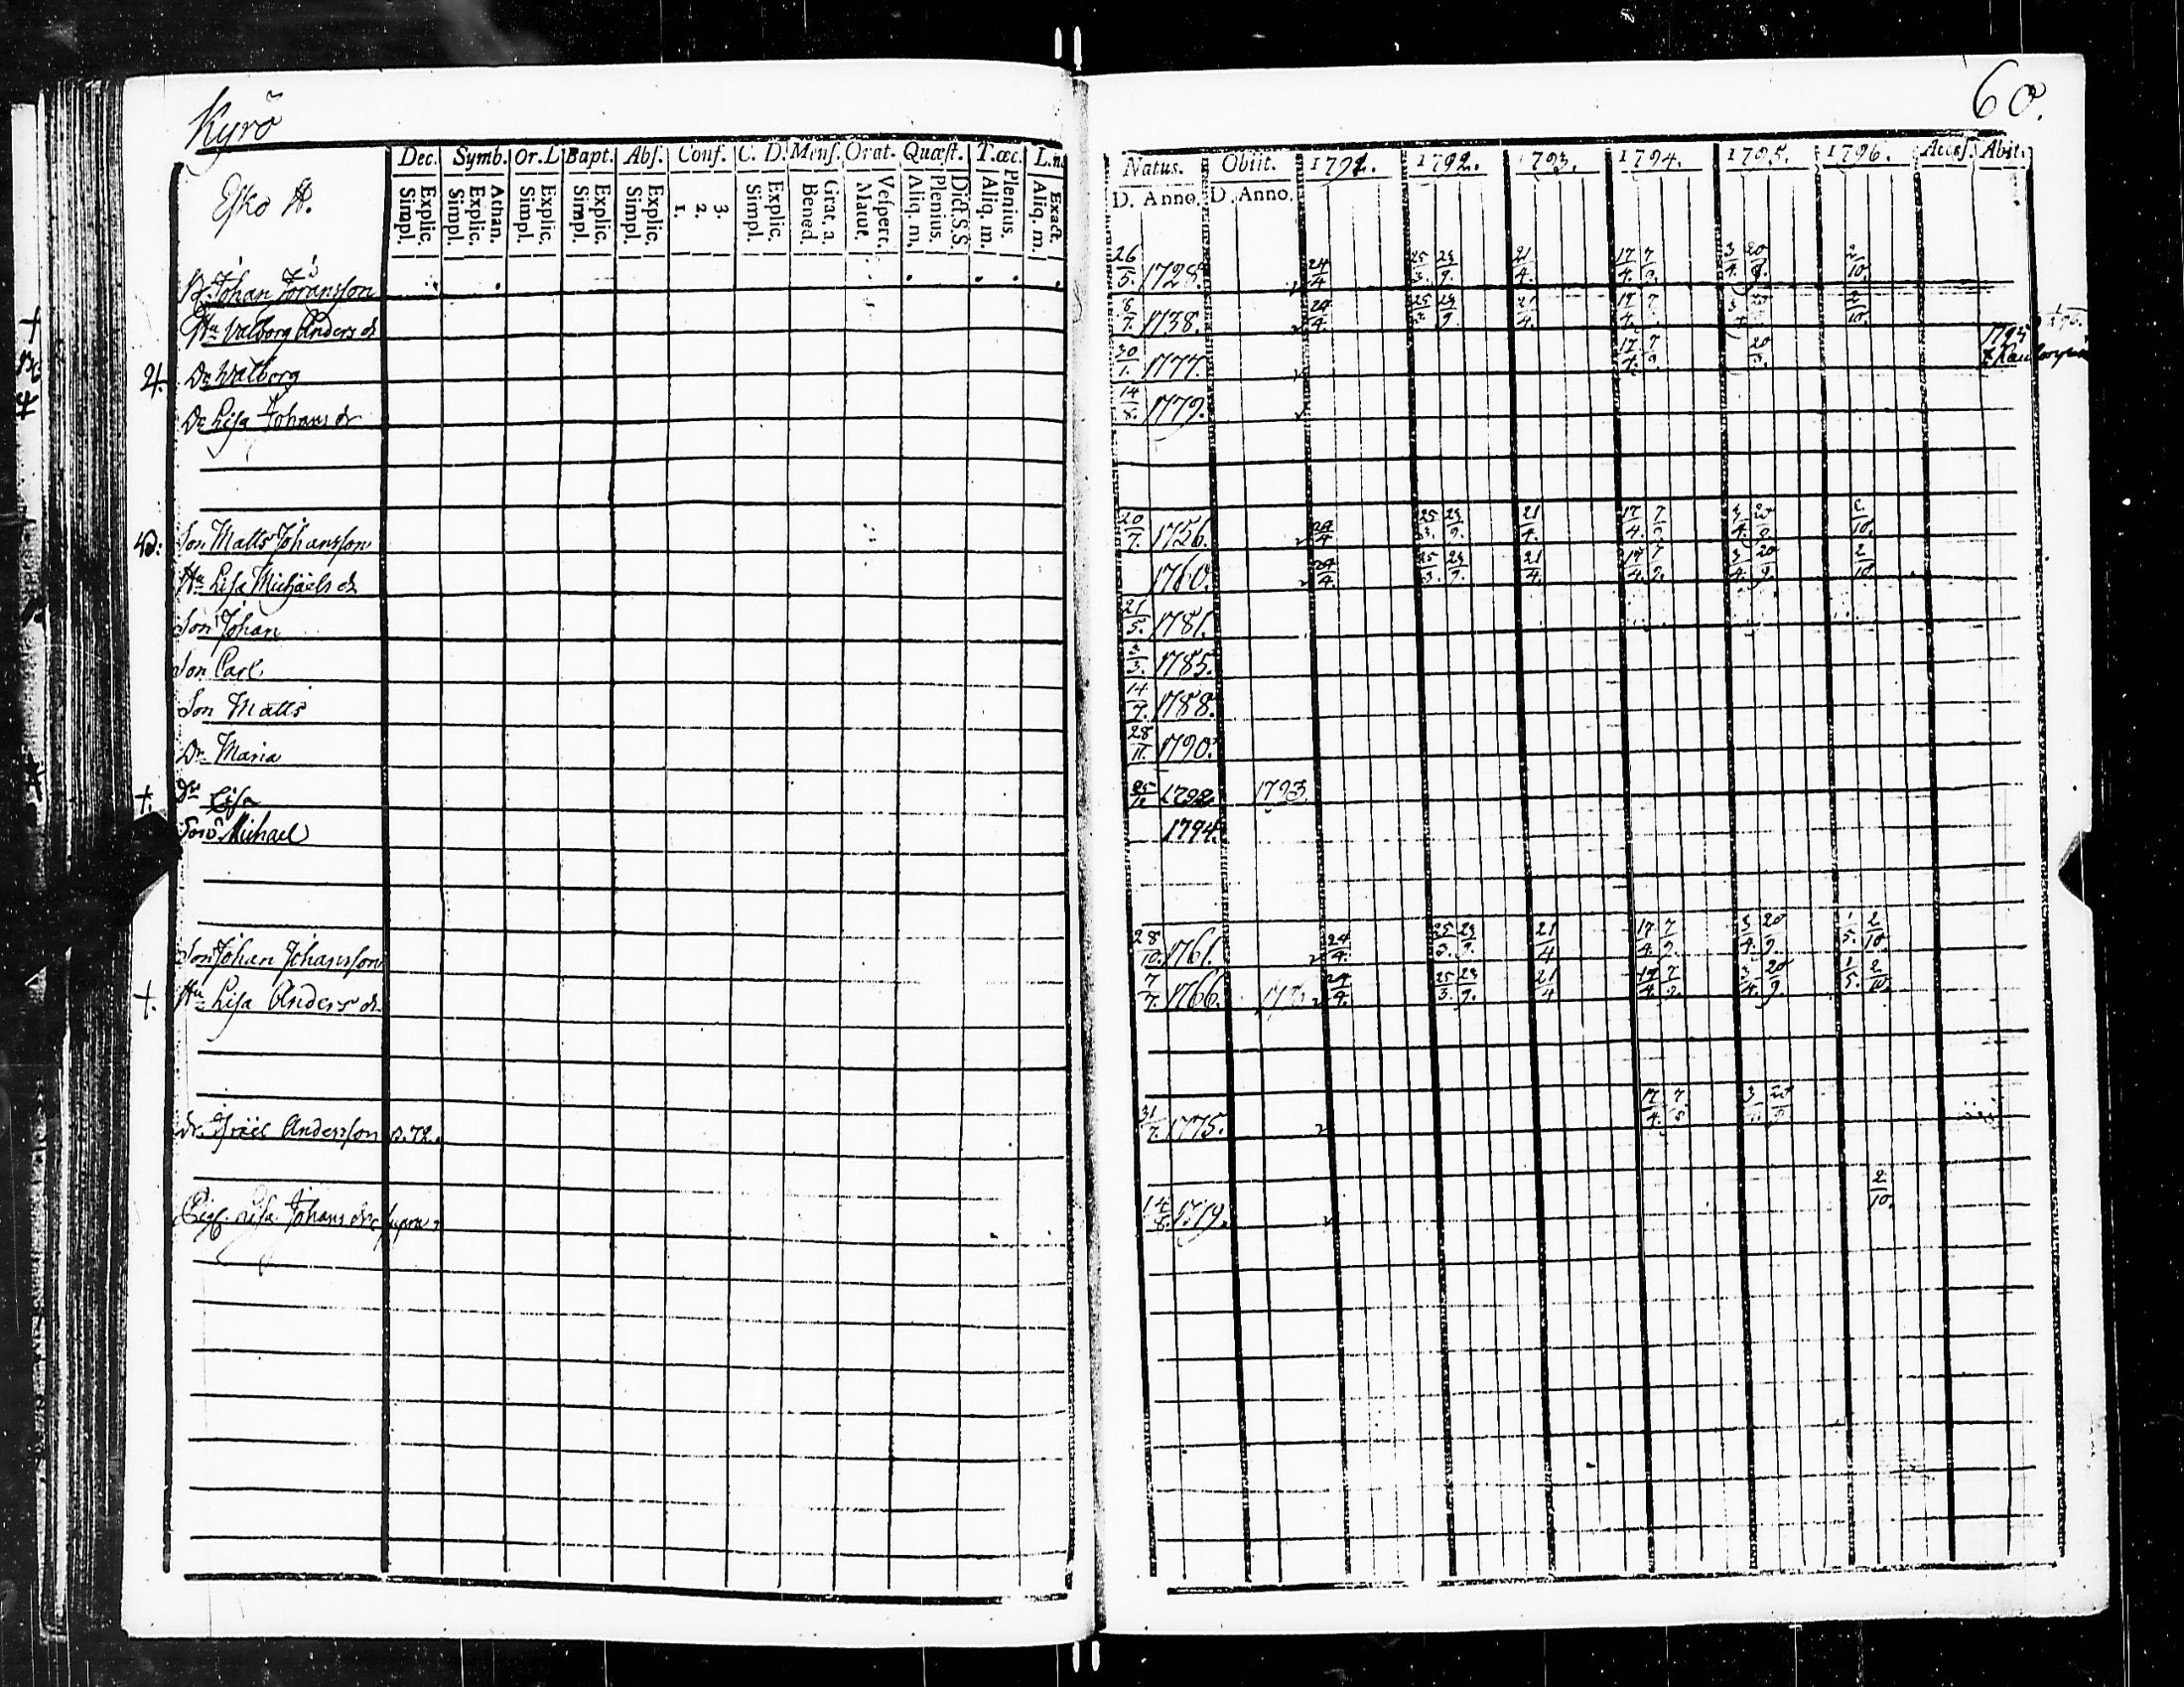 Kyrö
60.
Dec. Symb. Or. L Bapt. Abs. Conf. C. D. Mens. Orat. Quæst. T.œc. L.n. Natus. Obiit. 1791. 1792. 1793. 1794. 1795. 1796. Access. Abit.
Explic. Simpl. Athan. Explic. Simpl. Explic. Simpl. Explic. Simpl. Explic. Simpl. 3. 2. 1. Explic. Simpl. Grat. a. Bened. Vespert. Matut. Dict. S.S. Plenius. Aliq. m. Plenius. Aliq. m. Exact. Aliq. m. D. Anno. D. Anno.
Esko H.
B. Johan Jöransson 26/5. 1728. 24/4 25/3. 23/9. 21/4. 17/4. 7/9. 3/4. 20/9. 2/10.
Hu Valborg Anders dr 8/7. 1738. 24/4. 25/3. 23/9. 21/4. 17/4. 7/9. 2/10.
4. Dr Walborg 30/1. 1774. 17/4. 7/9. 20/9. 1795
Dr Lisa Johans dr 14/8. 1779.
Son Matts Johansson 20/7. 1756. 24/4 25/3. 23/9. 21/4. 17/4. 7/9. 3/4. 20/9. 2/10.
Hu Lisa Michaels dr 1760. 24/4. 25/3. 23/9. 21/4. 17/4. 7/9. 3/4. 20/9. 2/10.
Son Johan 21/5. 1781.
Son Carl 1785.
Son Matts 14/9. 1788.
Dr Maria 28/11. 1790.
†. Dr Lisa 1792. 1793.
Son Michael 1794.
Son Johan Johansson 28/10. 1761. 24/4. 25/3. 23/9. 21/4 17/4. 7/9. 3/4. 20/9. 1/5. 2/10
†. Hu Lisa Anders dr 7/7. 1766. 24/4. 25/3. 23/9. 21/4 17/4. 7/9. 3/4. 20/9. 1/5. 2/10.
Dr. Israel Andersson p. 72. 31/7. 1775. 17/4. 7/9
Pig. Lisa Johans dr supra 14/8. 1779. 2/10.